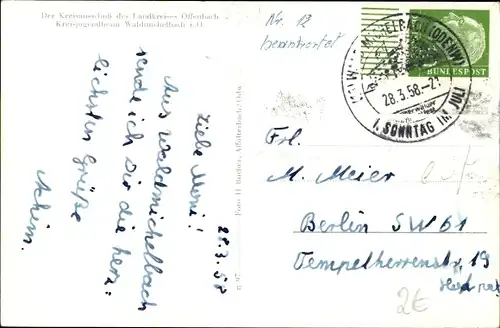 Der Kreisausschuß des Landkreises Offenbach
Kreisjugendheim Waldmichelbach i.O.
28.3.58
Liebe Meni!
Aus Waldmichelbach
sende ich Dir die herz-
lichsten Grüße
Achim.
Foto H. Buether, Affolterbach/Odw.
Nr. 12
beantwortet
WALDMICHELBACH (ODENW)
28.3.58.-21
1. SONNTAG IM JULI
BUNDESPOST
Frl.
M. Meier
Berlin SW 61
Tempelherrenstr. 19
2€